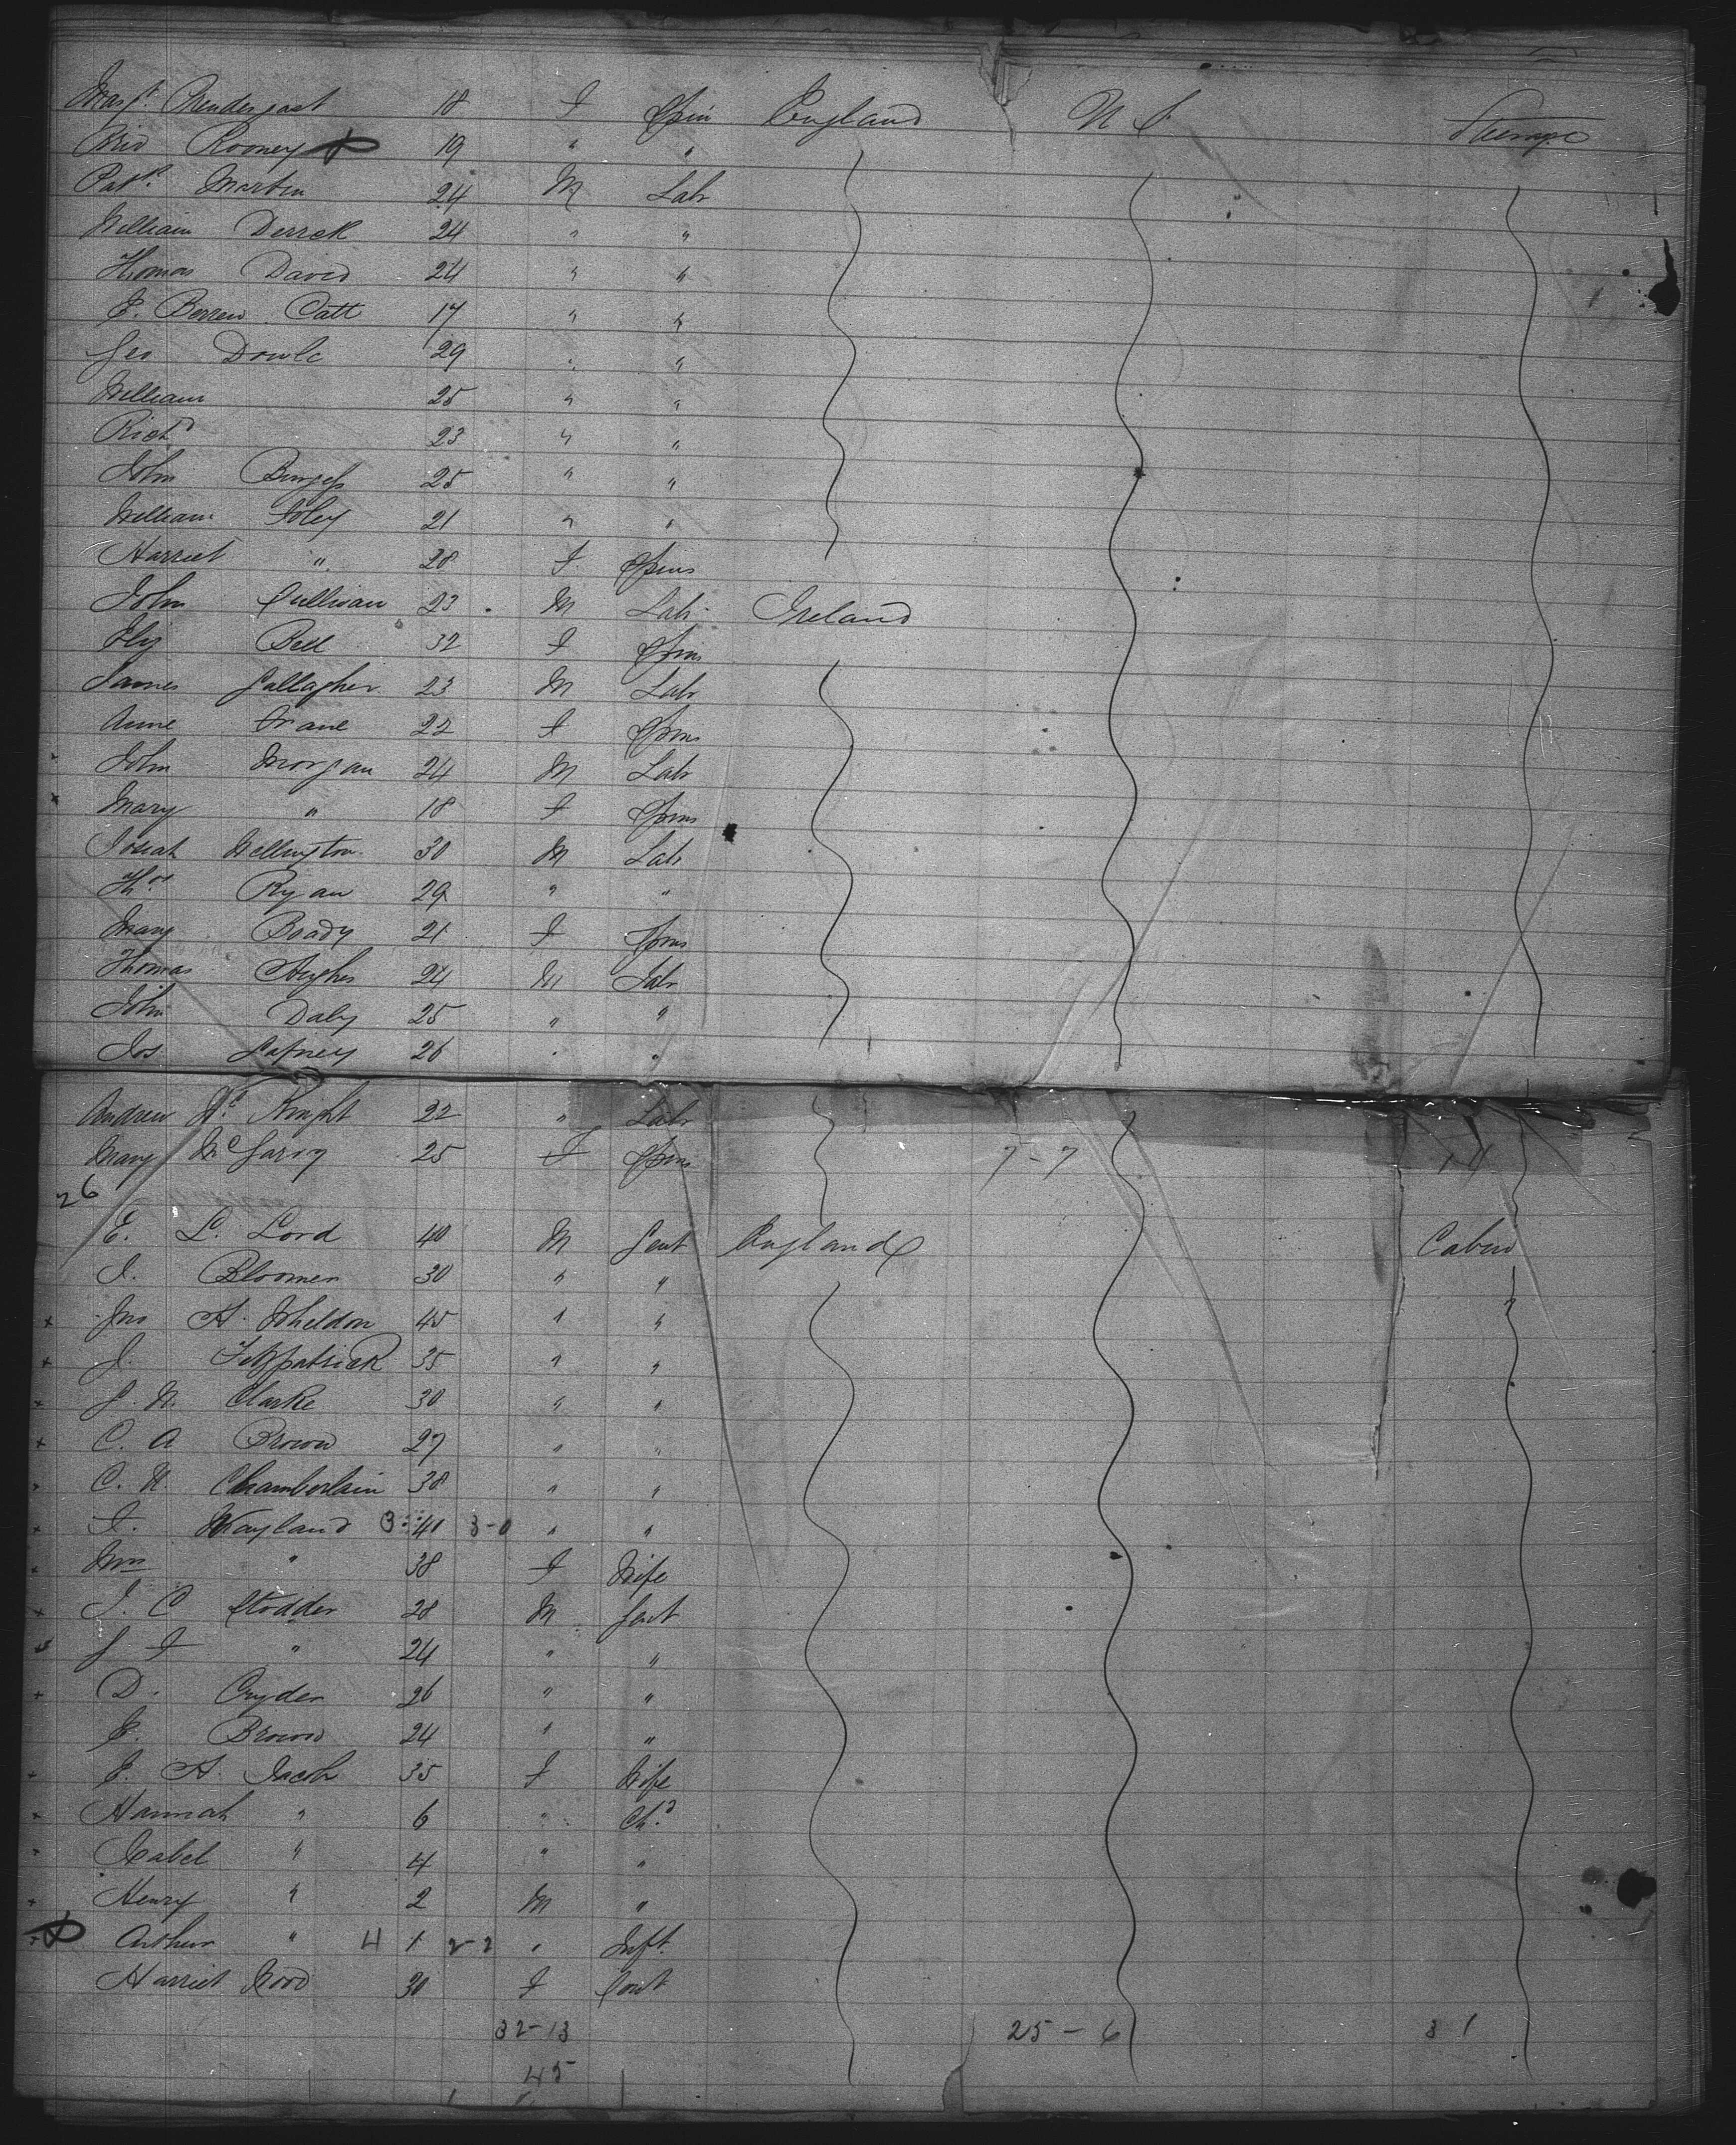 Margt. Prendergast 18 F Spin England U S Steerage
Brid Rooney 19 " "
Patk. Martin 24 M Labr
William Derrek 24 " "
Thomas David 24 " "
E. Berrew Catt 17 " "
Geo Dowle 29 " "
William 25 " "
Richd 23 " "
John Burgess 25 " "
William Foley 21 " "
Harriet " 28 F Spins
John Sullivan 23 M Labr Ireland
Eliz Bell 32 F Spins
James Gallagher 23 M Labr
Anne Crane 22 F Spins
John Morgan 24 M Labr
Mary " 18 F Spins
Josiah Wellington 30 M Labr
Thos Ryan 29 " "
Mary Brady 21 F Spins
Thomas Hughes 24 M Labr
John Daly 25 " "
Jos Gafney 26 " "
Andrew Mc Knight 22 " Labr
Mary Mc Garvy 25 F Spins 7-7
26
E. L. Lord 40 M Gent England Cabin
J. Bloomer 30 " "
Jno H. Sheldon 45 " "
J. Fitzpatrick 35 " "
G. W. Clarke 30 " "
C. A Brown 27 " "
C. H. Chamberlain 38 " "
F. Wayland 3 40 3-0 " "
Mrs " 38 F Wife
J. C Stodder 28 M Gent
G F " 24 " "
D. Cryder 26 " "
E. Brown 24 " "
E. H. Jacob 35 F Wife
Hannah " 6 " Chd.
Isabel " 4 " "
Henry " 2 M "
Arthur " 4 1 2-2 " Inft.
Harriet Wood 30 F
32-13 25-6 31
45